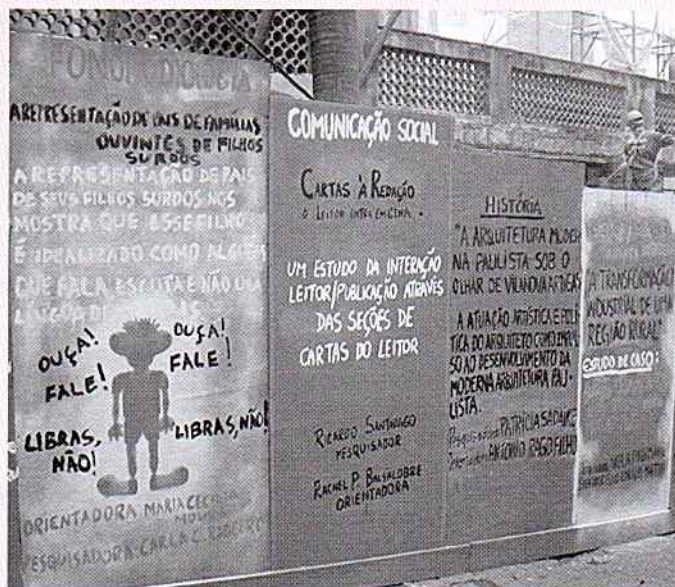 FONOAUDIOLOGIA
A REPRESENTAÇÃO DE PAIS DE FAMÍLIAS
OUVINTES DE FILHOS
SURDOS
A REPRESENTAÇÃO DE PAIS
DE SEUS FILHOS SURDOS NOS
MOSTRA QUE ESSE FILHO
É IDEALIZADO COMO ALGUÉM
QUE FALA ESCUTA E NÃO
OUÇA!
FALE!
OUÇA!
FALE!
LIBRAS,
NÃO!
LIBRAS, NÃO!
ORIENTADORA MARIA CECÍLIA
PESQUISADORA CARLA C.
COMUNICAÇÃO SOCIAL
CARTAS À REDAÇÃO
O LEITOR ENTRA EM CENA
UM ESTUDO DA INTERAÇÃO
LEITOR/PUBLICAÇÃO ATRAVÉS
DAS SEÇÕES DE
CARTAS DO LEITOR
RICARDO SANTHIAGO
PESQUISADOR
RACHEL P. BALSALOBRE
ORIENTADORA
HISTÓRIA
"A ARQUITETURA MODER
NA PAULISTA SOB O
OLHAR DE VILANOVA ARTIGAS
A ATUAÇÃO ARTÍSTICA E POLÍ
TICA DO ARQUITETO COMO IMPUL
SO AO DESENVOLVIMENTO DA
MODERNA ARQUITETURA PAU-
LISTA.
PATRÍCIA
ANTONIO RAGO FILHO
"A TRANSFORMAÇÃO
INDUSTRIAL DE UMA
REGIÃO RURAL"
ESTUDO DE CASO: